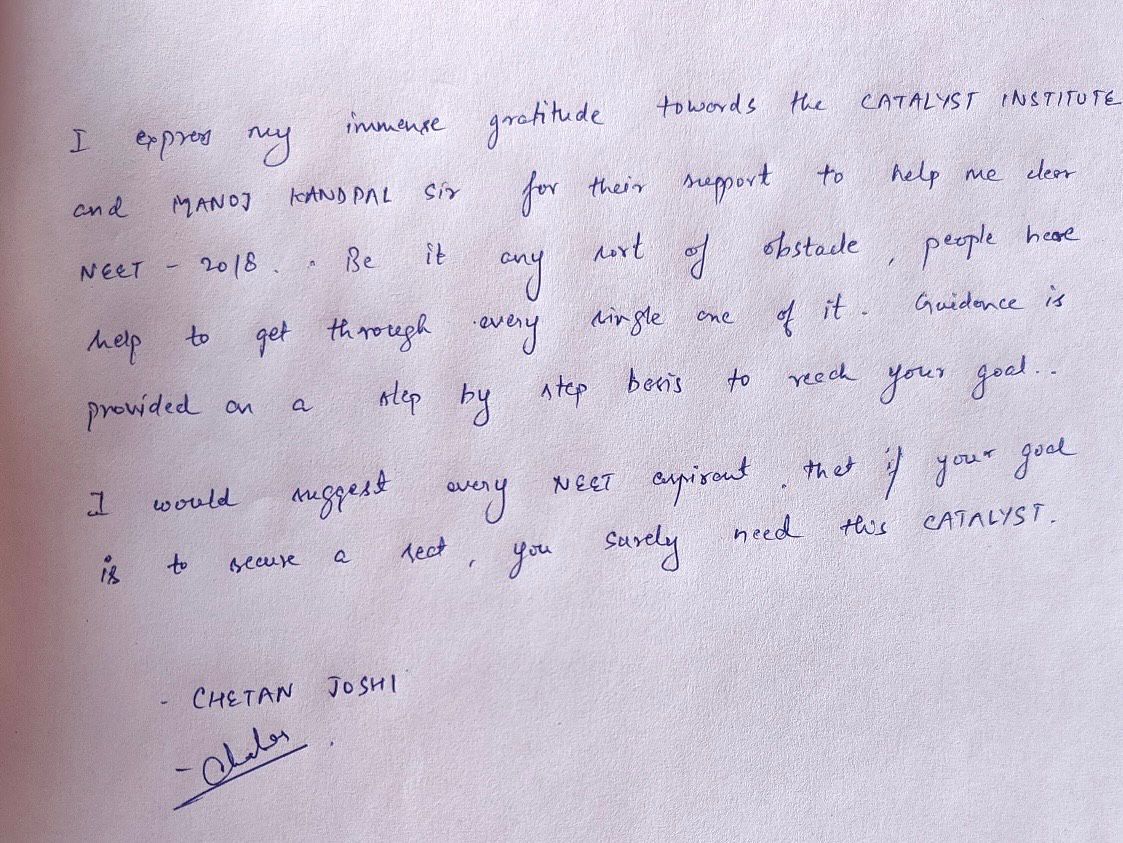 I express my immense gratitude towards the CATALYST INSTITUTE
and MANOJ KANDPAL Sir for their support to help me clear
NEET - 2018. . Be it any sort of obstacle, people here
help to get through every single one of it. Guidance is
provided on a step by step basis to reach your goal..
I would suggest every NEET aspirant, that if your goal
is to secure a seat, you surely need this CATALYST.
- CHETAN JOSHI